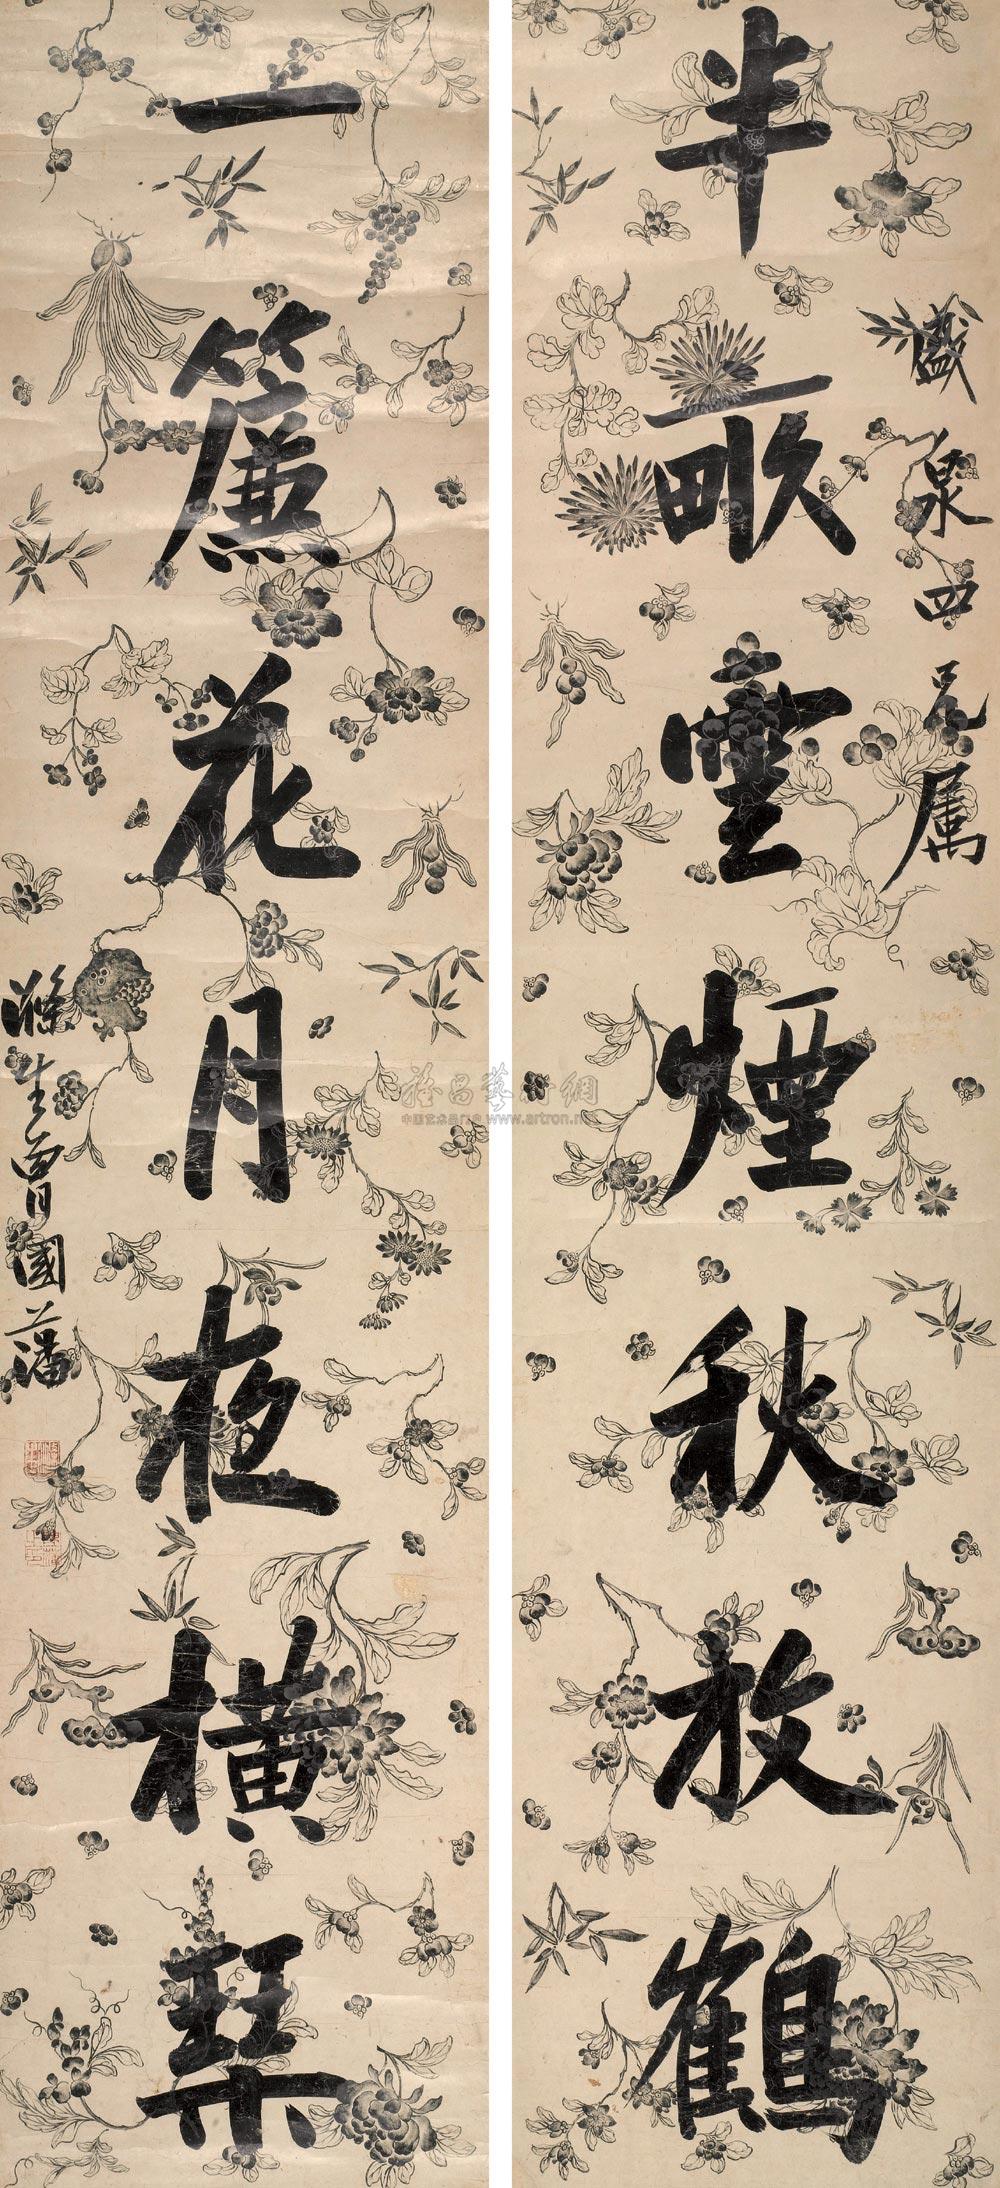 半畞雲煙秋放鶴
盛泉四兄属
一簾花月夜橫琹
滌生曾國藩
雅昌藝術網
中国艺术品门户 www.artron.net